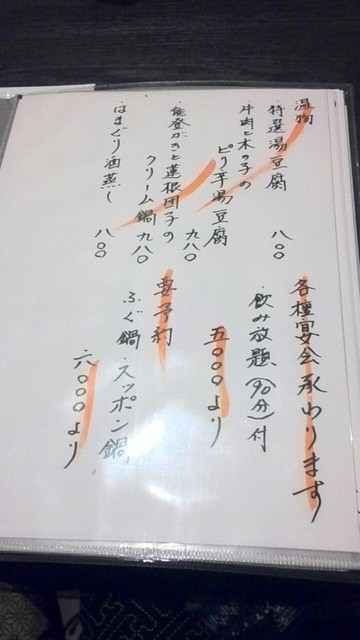 温物
・特選湯豆腐 八〇〇
・牛肉と木の子の
ピリ辛湯豆腐 九八〇
・能登がきと蓮根団子の
クリーム鍋 九八〇
・はまぐり酒蒸し 八〇〇
各種宴会承わります
・飲み放題(90分)付
五〇〇〇より
要予約
・ふぐ鍋・スッポン鍋
六〇〇〇より